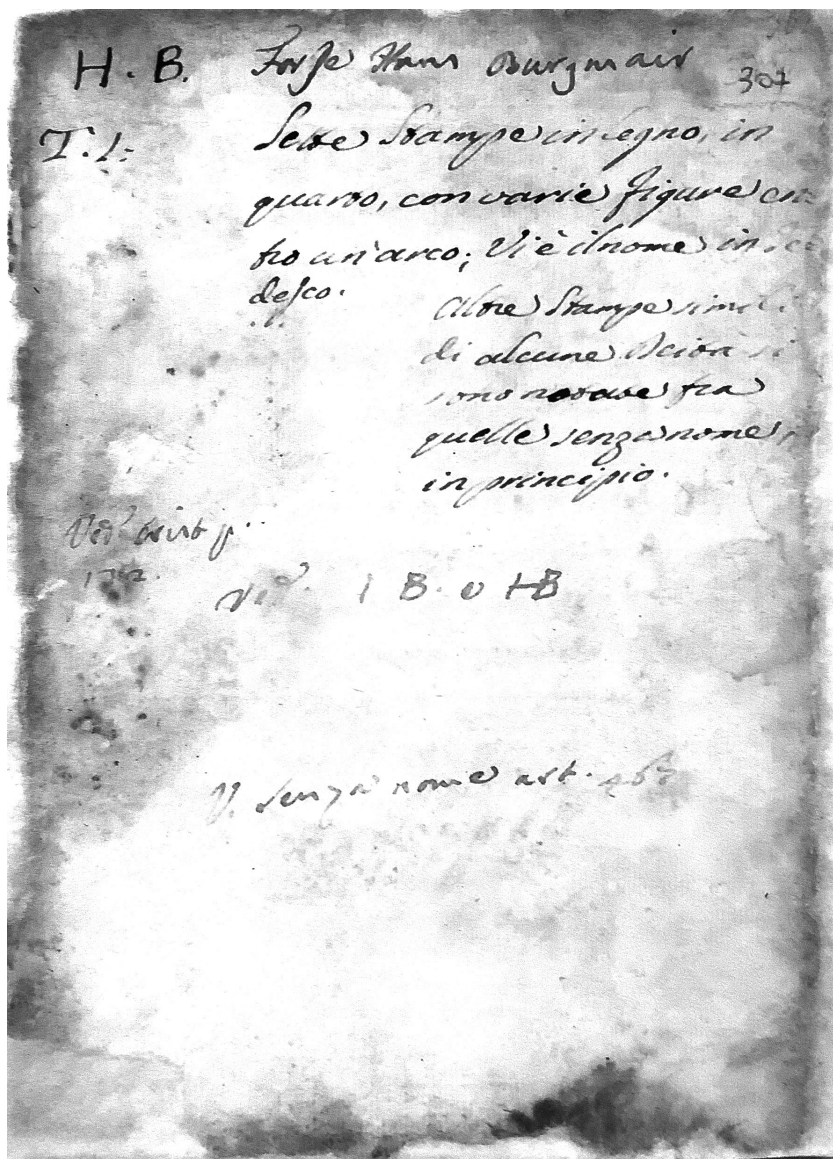 H. B. Forse Hans Burgmair 307
T. 1: Sette Stampe in legno, in
quarto, con varie figure en
tro un'arco; Vi è il nome in te
desco.
Altre Stampe simili
di alcune si
sono notate tra
quelle senza nome
in principio.
Ved.
Ved. I B. o HB
V. senza nome art. 463